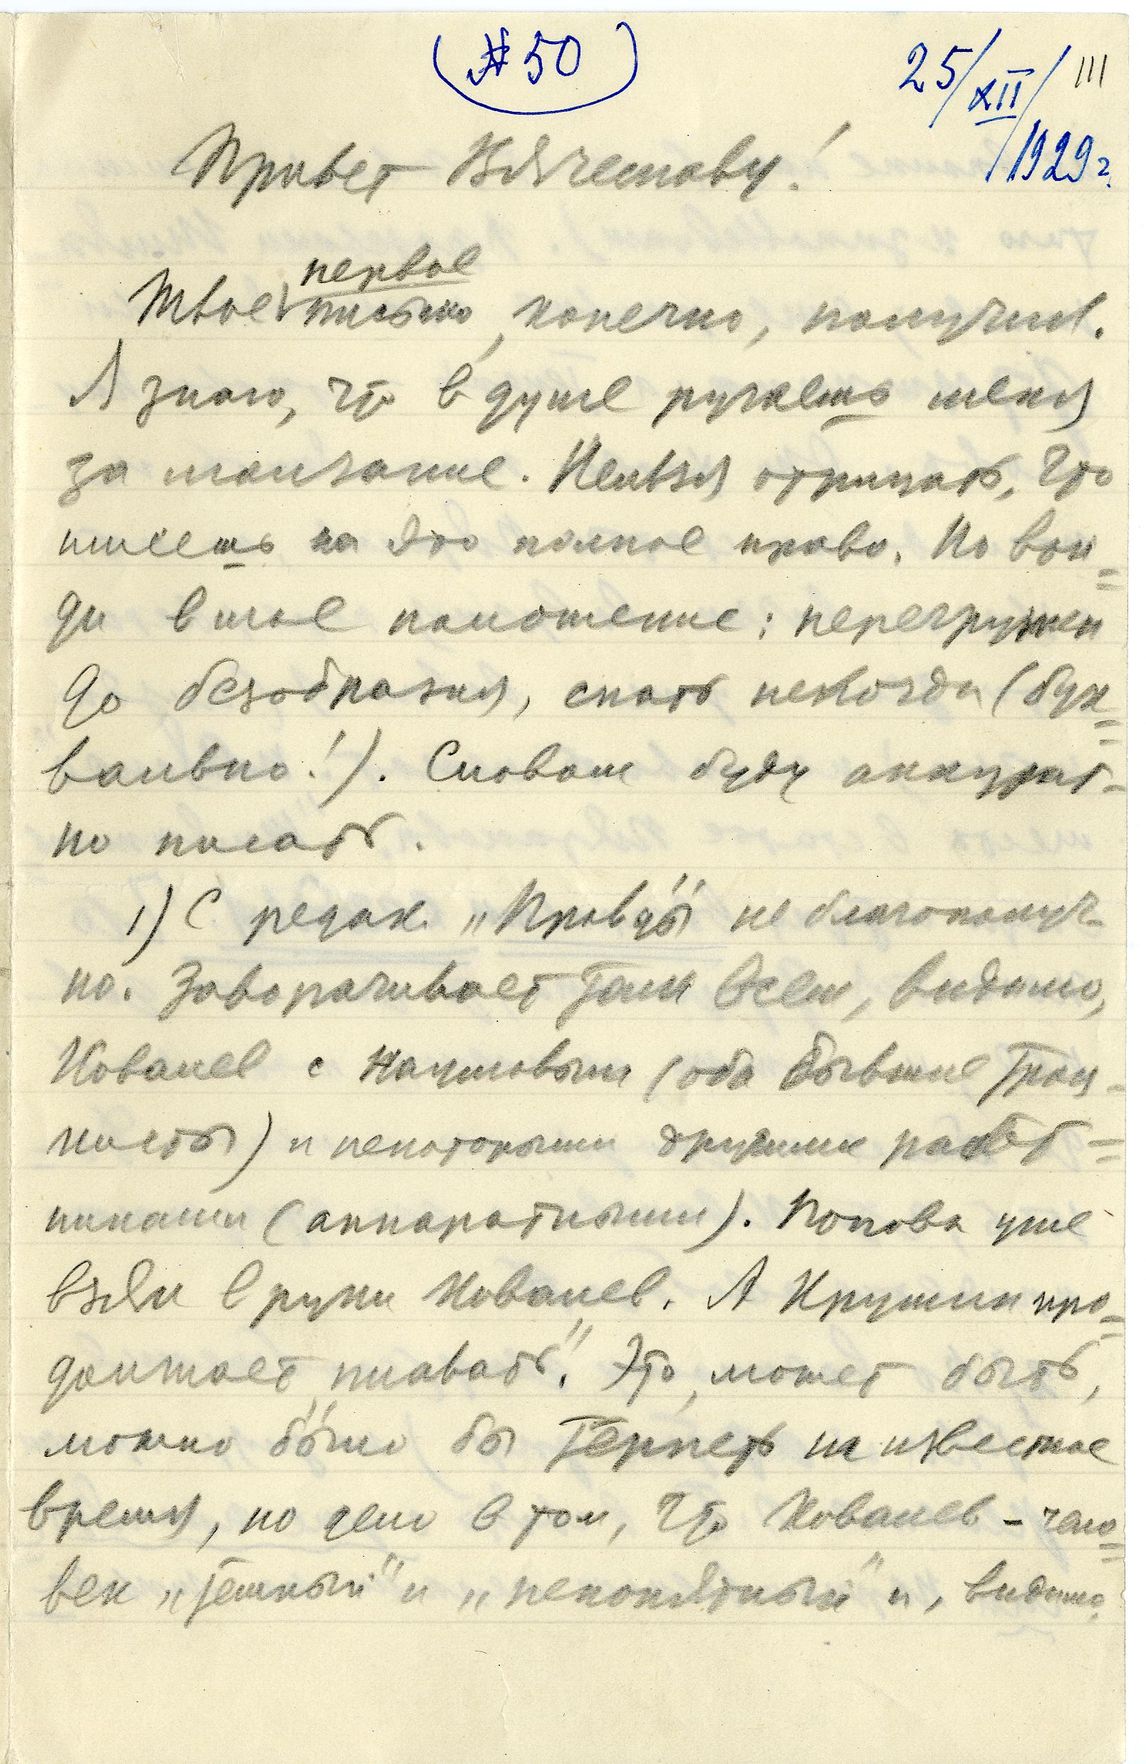 (#50)
25/XII/ III
1929г.
Привет Вячеславу!
первое
Твое письмо, конечно, получил.
Я знаю, что в душе ругаешь меня
за молчание. Нельзя отрицать, что
имеешь на это полное право. Но вой-
ди в мое положение: перегружен
до безобразия, спать некогда (бук-
вально!). Словом буду аккурат-
но писать.
1) С редак. „Правды" не благополуч-
но. Заворачивает там всем, видимо,
Ковалев с Наумовым (оба бывшие троц-
кисты) и некоторыми другими работ-
никами (аппаратными). Попова уже
взял в руки Ковалев. А Крумин про-
должает „плавать". Это, может быть,
можно было бы терпеть на известное
время, но дело в том, что Ковалев – чело-
век „темный" и „непонятный" и, видимо,